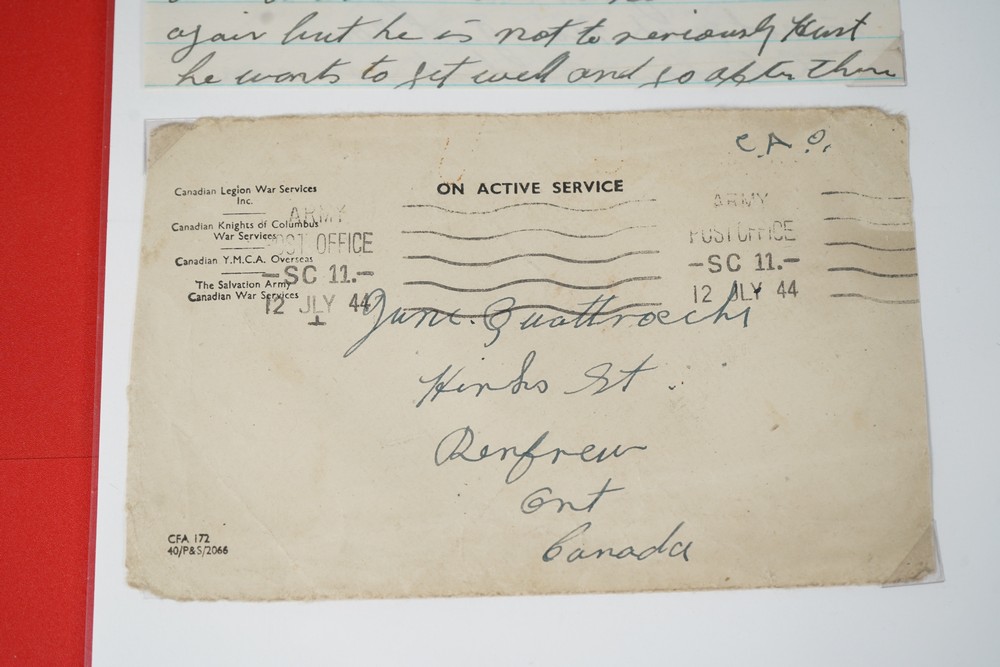 again but he is not to seriously Hurt
he wants to get well and go after them
C.A.O.
ON ACTIVE SERVICE
Canadian Legion War Services
Inc.
Canadian Knights of Columbus
War Services
Canadian Y.M.C.A. Overseas
The Salvation Army
Canadian War Services
ARMY
POST OFFICE
-SC 11.-
12 JLY 44
ARMY
POST OFFICE
-SC 11.-
12 JLY 44
June Quattrocchi
Hinks St
Renfrew
Ont
Canada
CFA 172
40/P&S/2066